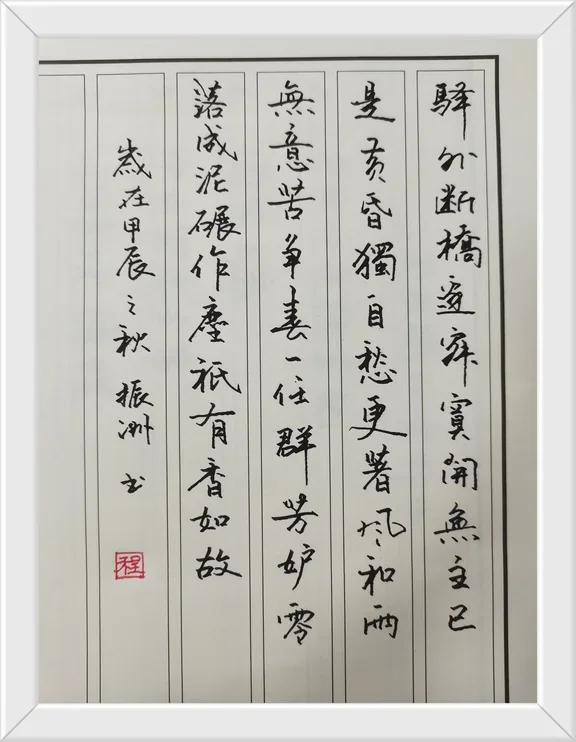 驛外断橋邊寂寞開無主已
是黄昏獨自愁更著風和雨
無意苦争春一任群芳妒零
落成泥碾作塵祇有香如故
歲在甲辰之秋振洲书
程